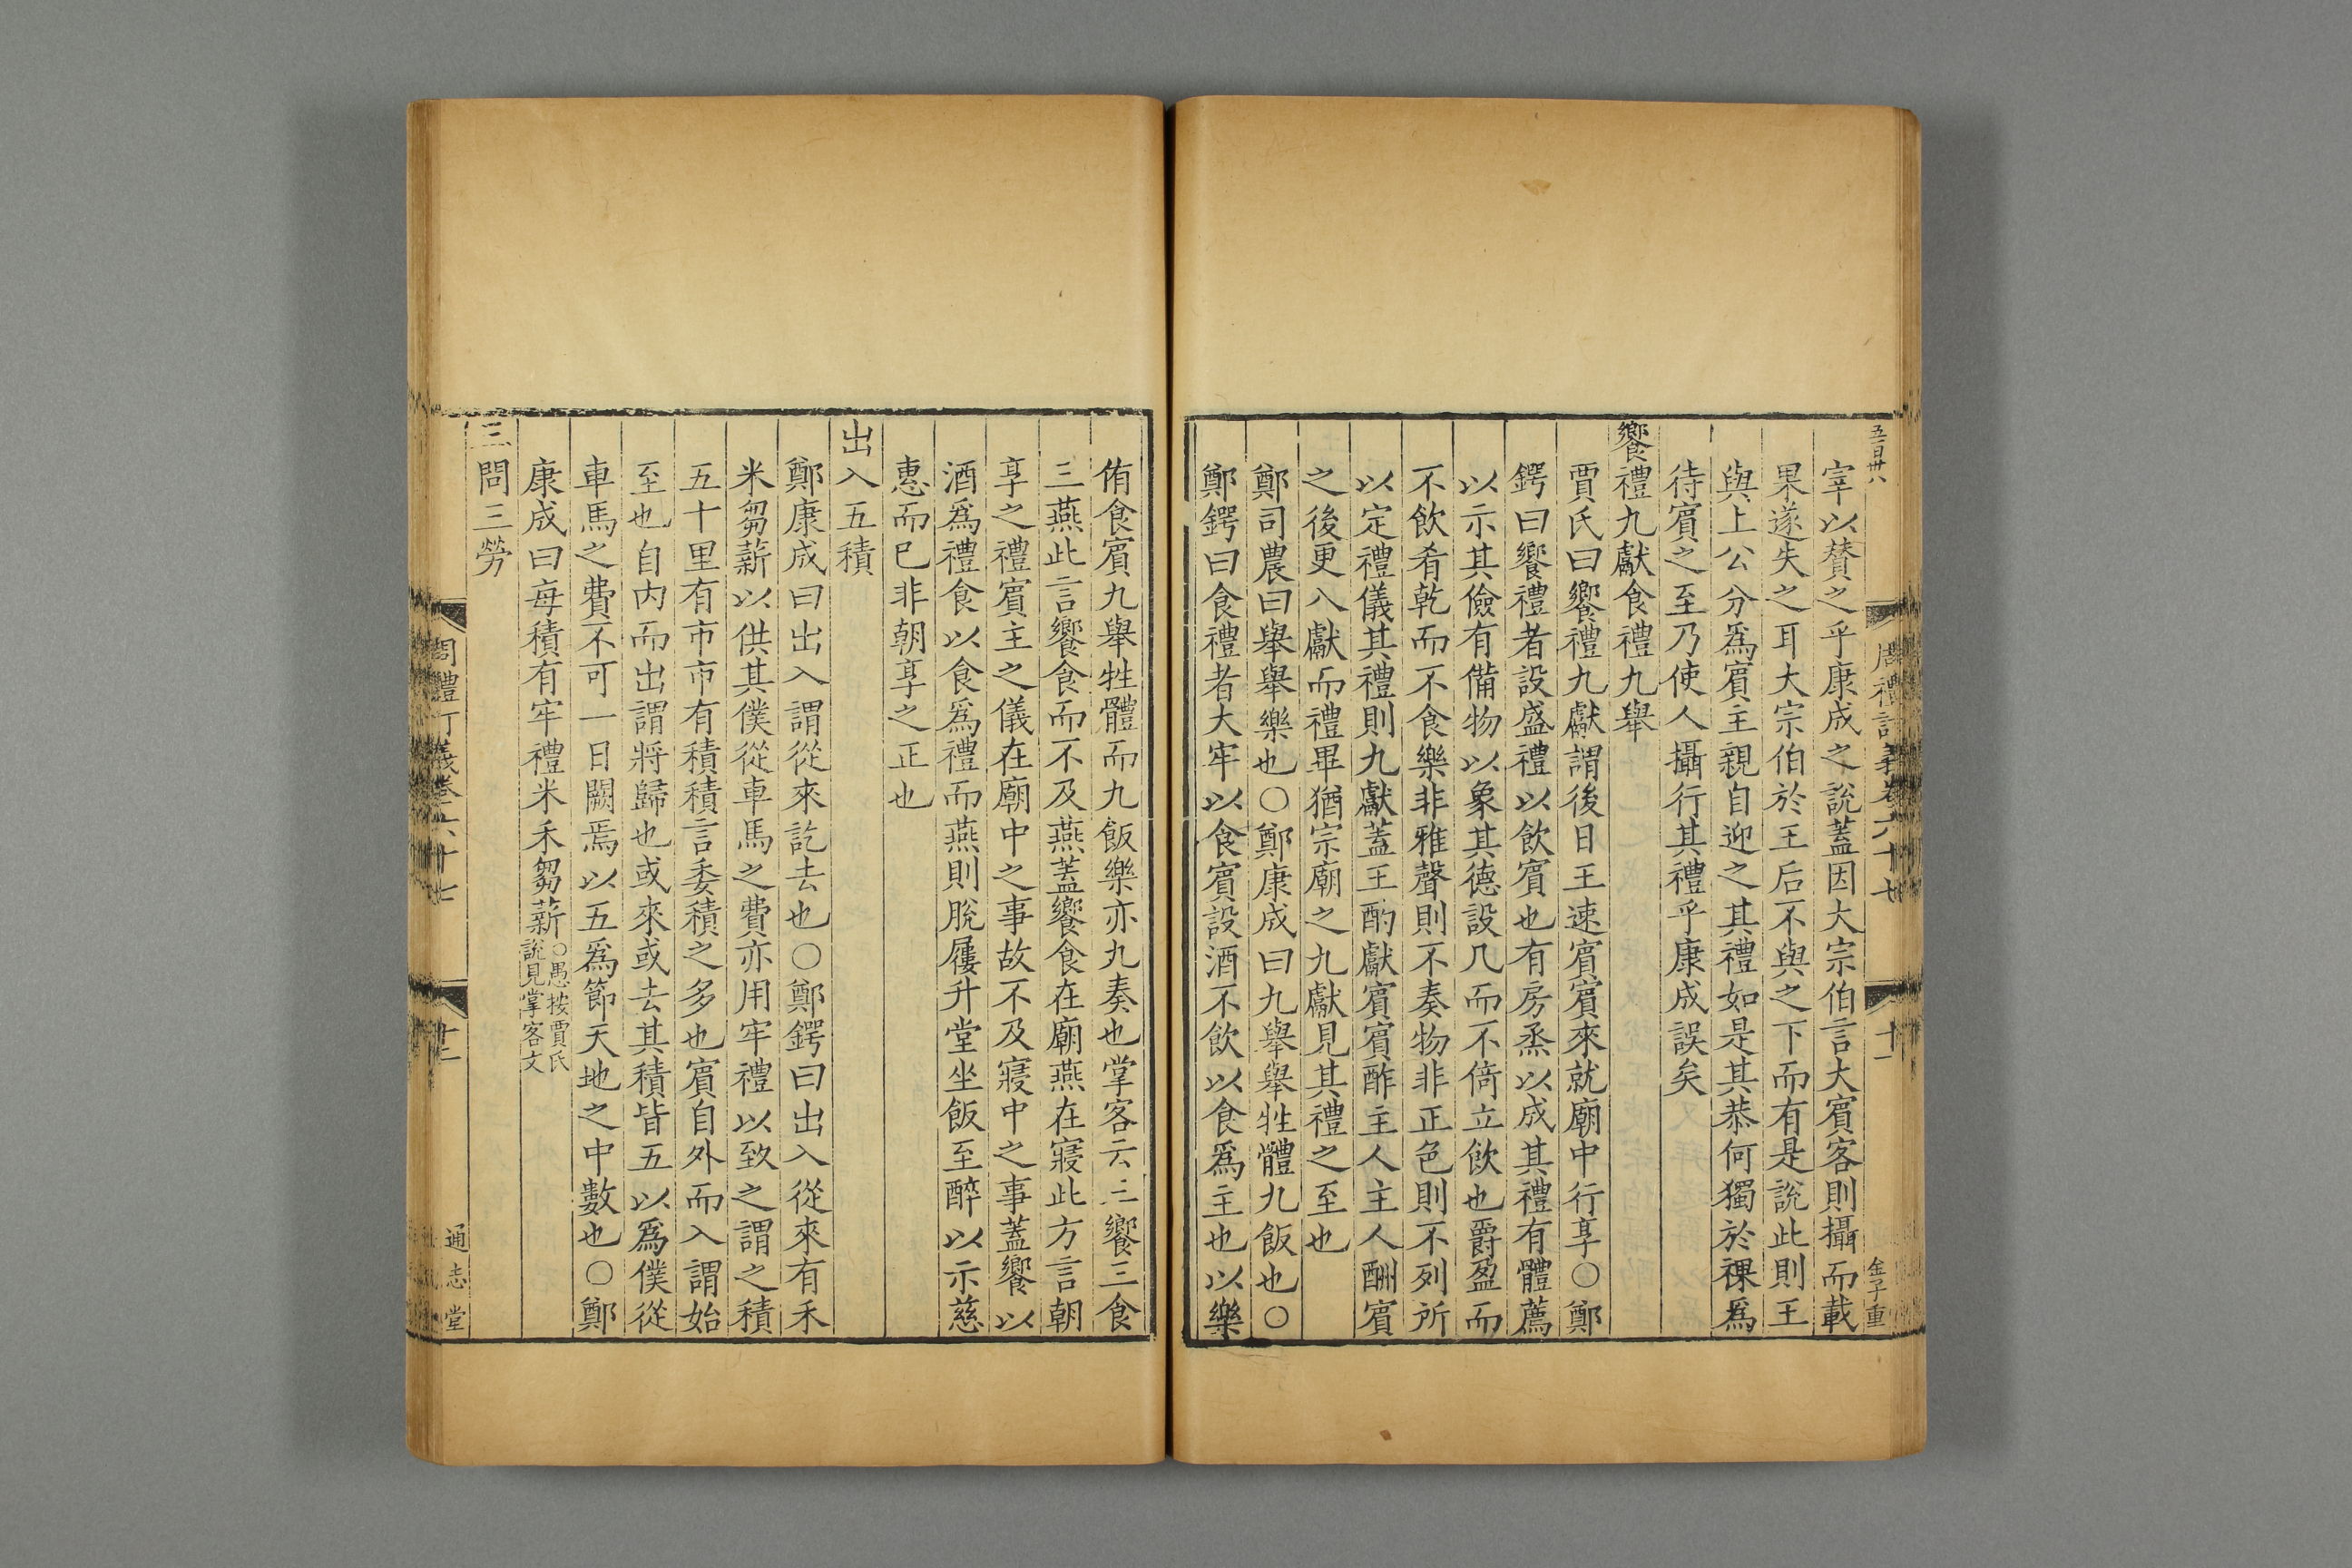 五百卅八
宰以賛之乎康成之說蓋因大宗伯言大賓客則攝而載
果遂失之耳大宗伯於王后不與之下而有是說此則王
與上公分爲賓主親自迎之其禮如是其恭何獨於祼爲
待賓之至乃使人攝行其禮乎康成誤矣
饗禮九獻食禮九舉
賈氏曰饗禮九獻謂後日王速賓賓來就廟中行享○鄭
鍔曰饗禮者設盛禮以飲賓也有房烝以成其禮有體薦
以示其儉有備物以象其德設几而不倚立飲也爵盈而
不飲肴乾而不食樂非雅聲則不奏物非正色則不列所
以定禮儀其禮則九獻蓋王酌獻賓賓酢主人主人酬賓
之後更八獻而禮畢猶宗廟之九獻見其禮之至也
鄭司農曰舉舉樂也○鄭康成曰九舉舉牲體九飯也○
鄭鍔曰食禮者大牢以食賓設酒不飲以食爲主也以樂
周禮訂義卷六十七
十一
金子重
侑食賓九舉牲體而九飯樂亦九奏也掌客云三饗三食
三燕此言饗食而不及燕蓋饗食在廟燕在寢此方言朝
享之禮賓主之儀在廟中之事故不及寢中之事蓋饗以
酒爲禮食以食爲禮而燕則脫屨升堂坐飯至醉以示慈
惠而已非朝享之正也
出入五積
鄭康成曰出入謂從來訖去也○鄭鍔曰出入從來有禾
米芻薪以供其僕從車馬之費亦用牢禮以致之謂之積
五十里有市市有積積言委積之多也賓自外而入謂始
至也自内而出謂將歸也或來或去其積皆五以爲僕從
車馬之費不可一日闕焉以五爲節天地之中數也○鄭
康成曰每積有牢禮米禾芻薪○愚按賈氏說見掌客文
三問三勞
周禮訂義卷六十七
十二
通志堂